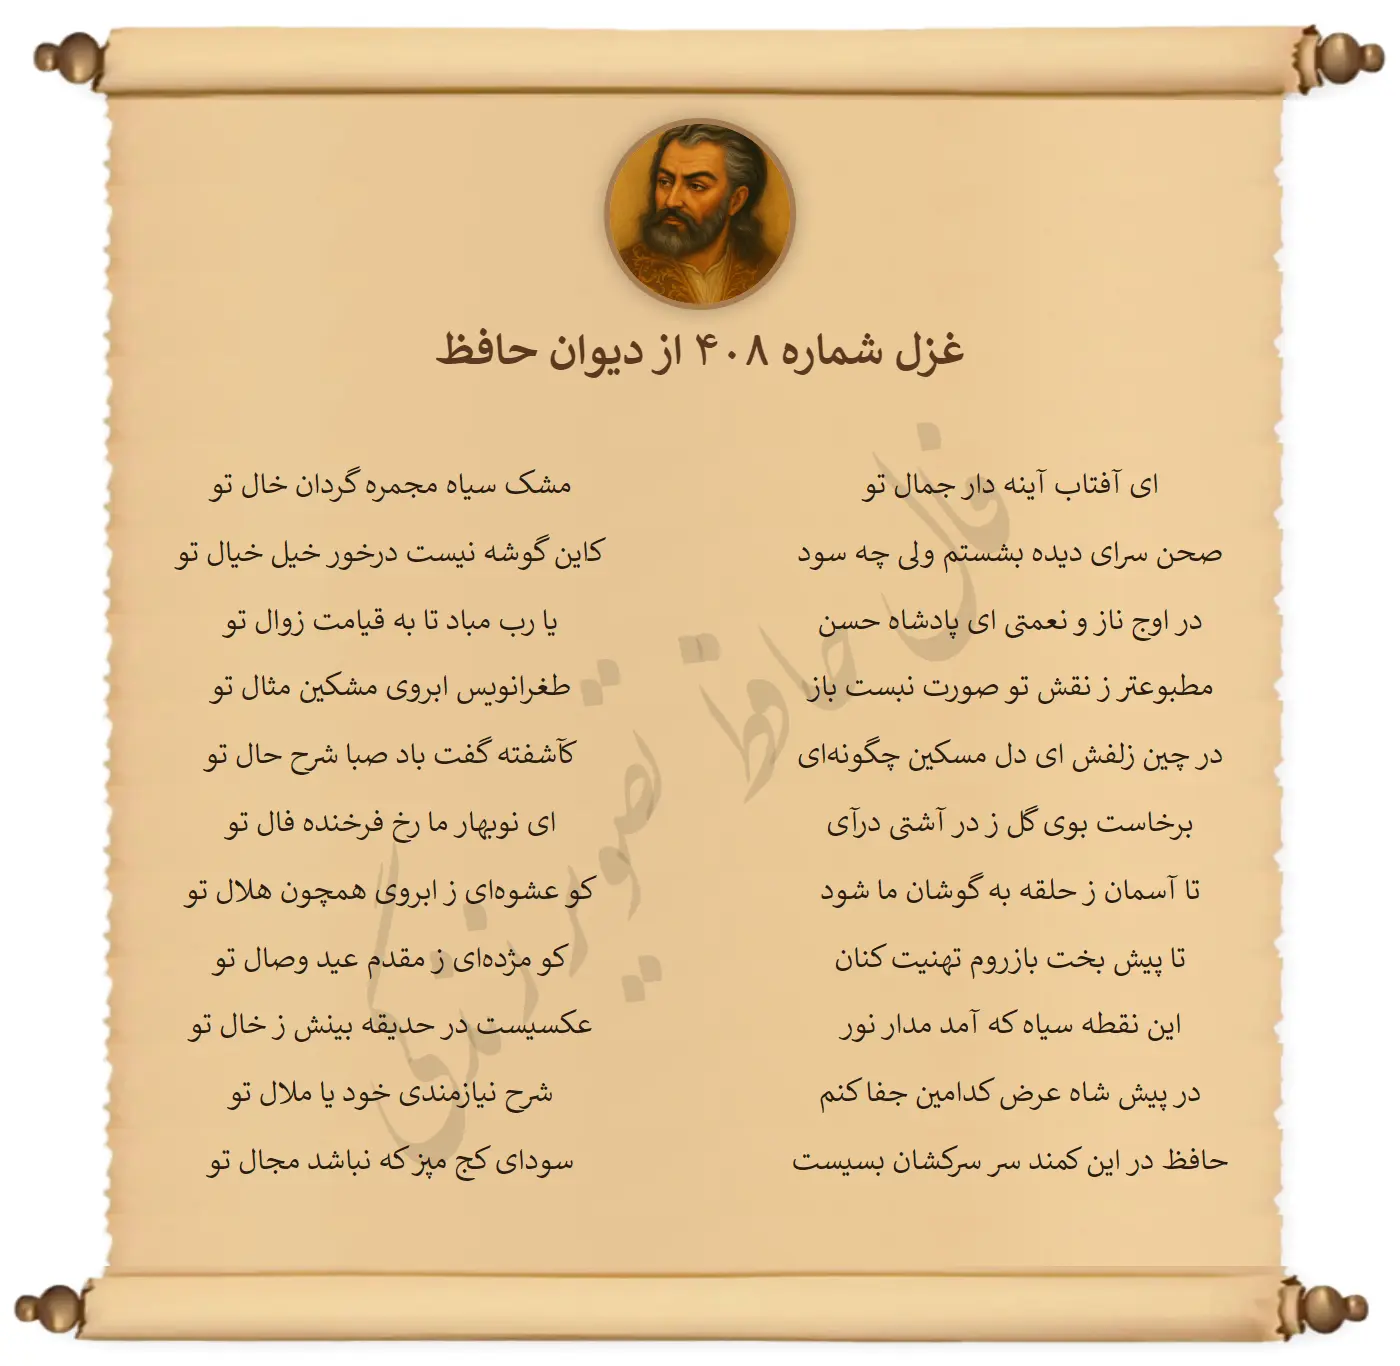 غزل شماره ۴۰۸ از دیوان حافظ
ای آفتاب آینه دار جمال تو
مشک سیاه مجمره گردان خال تو
صحن سرای دیده بشستم ولی چه سود
کاین گوشه نیست درخور خیل خیال تو
در اوج ناز و نعمتی ای پادشاه حسن
یا رب مباد تا به قیامت زوال تو
مطبوعتر ز نقش تو صورت نبست باز
طغرانویس ابروی مشکین مثال تو
در چین زلفش ای دل مسکین چگونه‌ای
کآشفته گفت باد صبا شرح حال تو
برخاست بوی گل ز در آشتی درآی
ای نوبهار ما رخ فرخنده فال تو
تا آسمان ز حلقه به گوشان ما شود
کو عشوه‌ای ز ابروی همچون هلال تو
تا پیش بخت بازروم تهنیت کنان
کو مژده‌ای ز مقدم عید وصال تو
این نقطه سیاه که آمد مدار نور
عکسیست در حدیقه بینش ز خال تو
در پیش شاه عرض کدامین جفا کنم
شرح نیازمندی خود یا ملال تو
حافظ در این کمند سر سرکشان بسیست
سودای کج مپز که نباشد مجال تو
فال حافظ تصویر زندگی